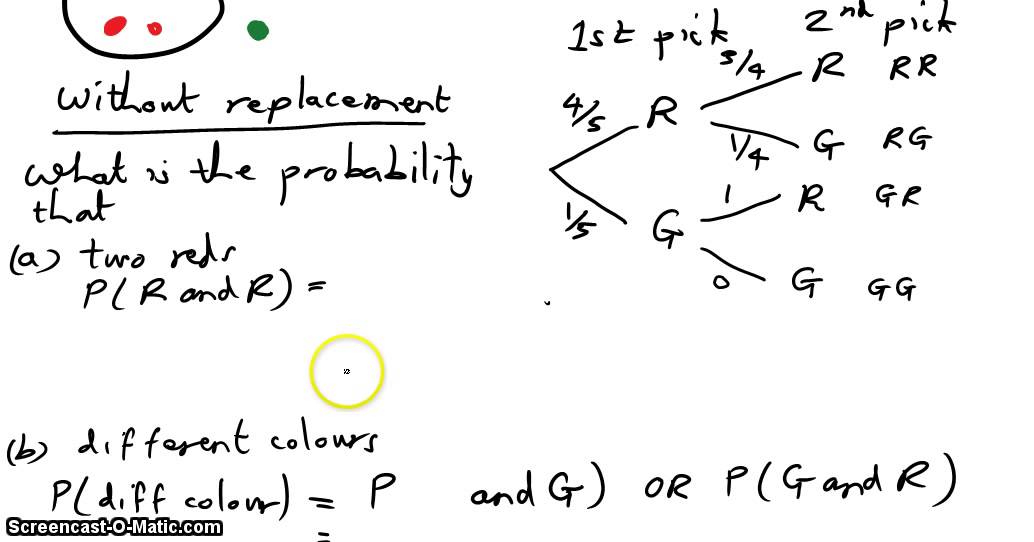 1st pick 2nd pick
without replacement
what is the probability
that
(a) two reds
P(R and R) =
4/5 R 3/4 R RR
1/4 G RG
1/5 G 1 R GR
0 G GG
(b) different colours
P(diff colour) = P and G) OR P(G and R)
=
Screencast-O-Matic.com